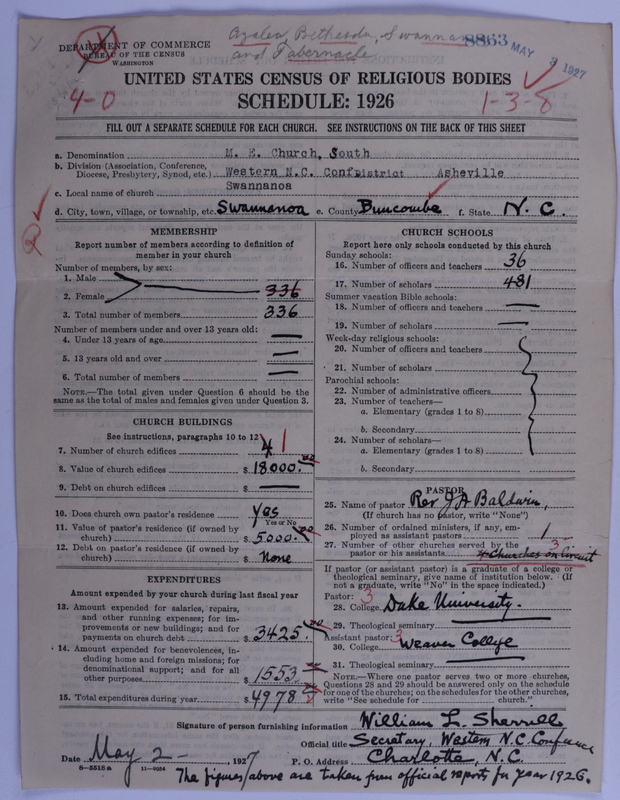 Azalea, Bethesda, Swannanoa
and Tabernacle
8863 MAY 3 1927
DEPARTMENT OF COMMERCE
BUREAU OF THE CENSUS
WASHINGTON
UNITED STATES CENSUS OF RELIGIOUS BODIES
4-0 SCHEDULE: 1926 1-3-8
FILL OUT A SEPARATE SCHEDULE FOR EACH CHURCH. SEE INSTRUCTIONS ON THE BACK OF THIS SHEET
a. Denomination M. E. Church, South
b. Division (Association, Conference, Diocese, Presbytery, Synod, etc.) Western N.C. Conf District Asheville
c. Local name of church Swannanoa
d. City, town, village, or township, etc. Swannanoa e. County Buncombe f. State N. C.
MEMBERSHIP
Report number of members according to definition of
member in your church
Number of members, by sex:
1. Male
2. Female 336
3. Total number of members 336
Number of members under and over 13 years old:
4. Under 13 years of age —
5. 13 years old and over —
6. Total number of members —
NOTE.—The total given under Question 6 should be
same as the total of males and females given under Question 3.
CHURCH BUILDINGS
See instructions, paragraphs 10 to 12
7. Number of church edifices 4 1
8. Value of church edifices $ 18000.00
9. Debt on church edifices $ —
10. Does church own pastor's residence Yes
Yes or No
11. Value of pastor's residence (if owned by
church) $ 5000.00
12. Debt on pastor's residence (if owned by
church) $ None
EXPENDITURES
Amount expended by your church during last fiscal year
13. Amount expended for salaries, repairs,
and other running expenses; for im-
provements or new buildings; and for
payments on church debt $ 3425
14. Amount expended for benevolences, in-
cluding home and foreign missions; for
denominational support; and for all
other purposes $ 1553
15. Total expenditures during year $ 4978
CHURCH SCHOOLS
Report here only schools conducted by this church
Sunday schools:
16. Number of officers and teachers 36
17. Number of scholars 481
Summer vacation Bible schools:
18. Number of officers and teachers —
19. Number of scholars —
Week-day religious schools:
20. Number of officers and teachers
21. Number of scholars
Parochial schools:
22. Number of administrative officers
23. Number of teachers—
a. Elementary (grades 1 to 8)
b. Secondary
24. Number of scholars—
a. Elementary (grades 1 to 8)
b. Secondary
PASTOR
25. Name of pastor Rev J A Baldwin,
(If church has no pastor, write "None")
26. Number of ordained ministers, if any, em-
ployed as assistant pastors 1
27. Number of other churches served by the 3
pastor or his assistants 4 Churches on Circuit
If pastor (or assistant pastor) is a graduate of a college or
theological seminary, give name of institution below. (If
not a graduate, write "No" in the space indicated.)
Pastor: 3
28. College Duke University.
29. Theological seminary
Assistant pastor: 3
30. College Weaver College
31. Theological seminary
NOTE.—Where one pastor serves two or more churches,
Questions 28 and 29 should be answered only on the schedule
for one of the churches; on the schedules for the other churches,
write "See schedule for church."
Signature of person furnishing information William L. Sherrill
Official title Secretary, Western N.C. Conference
Date May 2- 1927 P. O. Address Charlotte, N.C.
8-5515 a 11-9034
The figures above are taken from official report for year 1926.